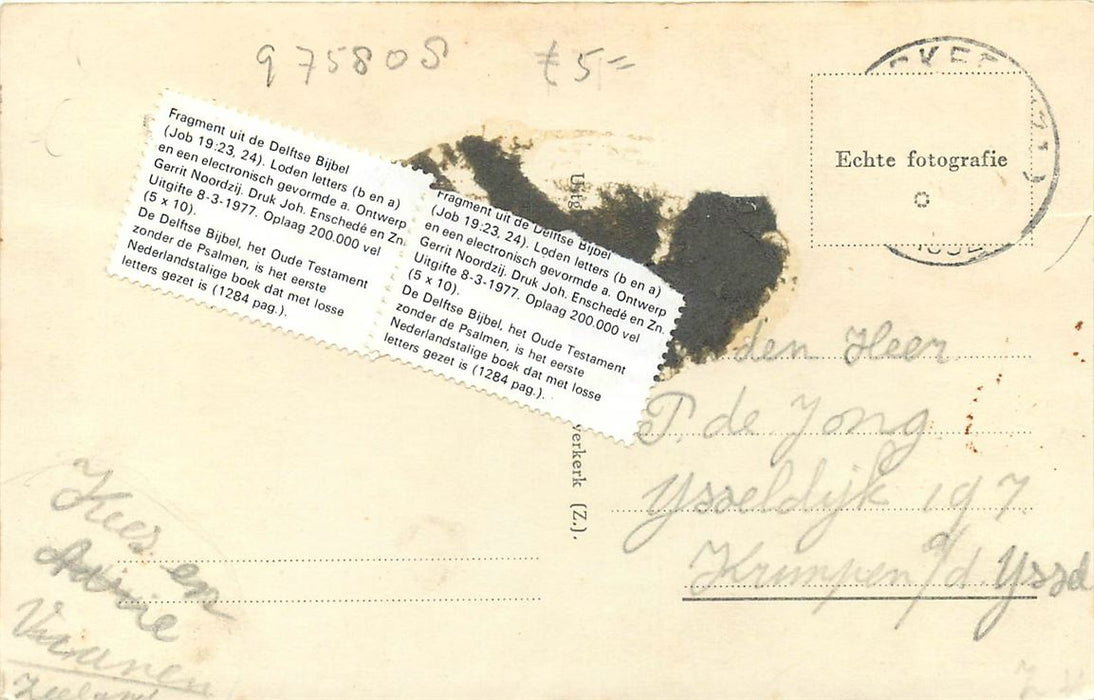 975808 £5=
Echte fotografie
Fragment uit de Delftse Bijbel
(Job 19:23, 24). Loden letters (b en a)
en een electronisch gevormde a. Ontwerp
Gerrit Noordzij. Druk Joh. Enschedé en Zn.
Uitgifte 8-3-1977. Oplaag 200.000 vel
(5 x 10).
De Delftse Bijbel, het Oude Testament
zonder de Psalmen, is het eerste
Nederlandstalige boek dat met losse
letters gezet is (1284 pag.).
Fragment uit de Delftse Bijbel
(Job 19:23, 24). Loden letters (b en a)
en een electronisch gevormde a. Ontwerp
Gerrit Noordzij. Druk Joh. Enschedé en Zn.
Uitgifte 8-3-1977. Oplaag 200.000 vel
(5 x 10).
De Delftse Bijbel, het Oude Testament
zonder de Psalmen, is het eerste
Nederlandstalige boek dat met losse
letters gezet is (1284 pag.).
Uitg
verkerk (Z.).
den Heer
P. de Jong
Ysseldijk 197
Krimpen a/d Yssel
Kees en
Adrie